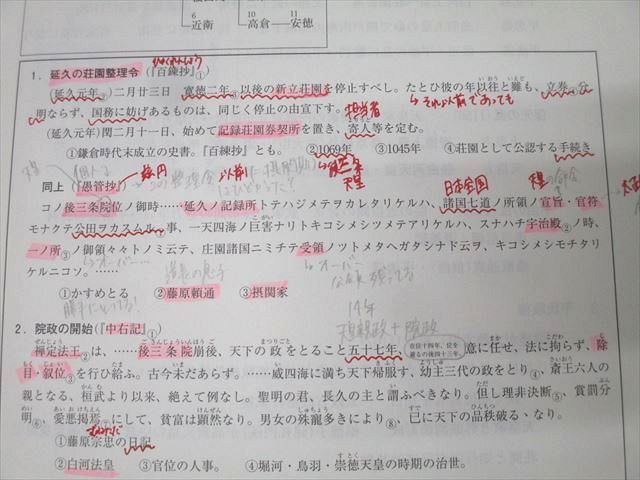 6 近衛
10 高倉
11 安徳
1. 延久の荘園整理令(『百錬抄』①)
ひゃくれんしょう
(延久元年②)二月廿三日 寛徳二年③以後の新立荘園を停止すべし。たとひ彼の年以往と雖も、立券④分
それ以前であっても
明ならず、国務に妨げあるものは、同じく停止の由宣下す。
担当者
(延久元年)閏二月十一日、始めて記録荘園券契所を置き、寄人等を定む。
①鎌倉時代末成立の史書。『百練抄』とも。 ②1069年 ③1045年 ④荘園として公認する手続き
慈円
以前
後三条天皇
日本全国
同上(『愚管抄』)
コノ後三条院位ノ御時……延久ノ記録所トテハジメテヲカレタリケルハ、諸国七道ノ所領ノ宣旨・官符
モナクテ公田ヲカスムル①事、一天四海ノ巨害ナリトキコシメシツメテアリケルハ、スナハチ宇治殿②ノ時、
一ノ所③ノ御領々々トノミ云テ、庄園諸国ニミチテ受領ノツトメタヘガタシナド云ヲ、キコシメシモチタリ
ケルニコソ。……
オーバー
道長の息子
①かすめとる ②藤原頼通 ③摂関家
14年
2. 院政の開始(『中右記』①)
禅定法王②は、……後三条院崩後、天下の政をとること五十七年、(在位十四年、位を避るの後四十三年。)意に任せ、法に拘らず、除
目・叙位③を行ひ給ふ。古今未だあらず。……威四海に満ち天下帰服す、幼主三代の政をとり④、斎王六人の
親となる、桓武より以来、絶えて例なし。聖明の君、長久の主と謂ふべきなり。但し理非決断⑤、賞罰分
明⑥、愛悪掲焉⑦にして、貧富は顕然なり。男女の殊寵多きにより⑧、已に天下の品秩破るゝなり。
むねただ
①藤原宗忠の日記
②白河法皇 ③官位の人事。 ④堀河・鳥羽・崇徳天皇の時期の治世。